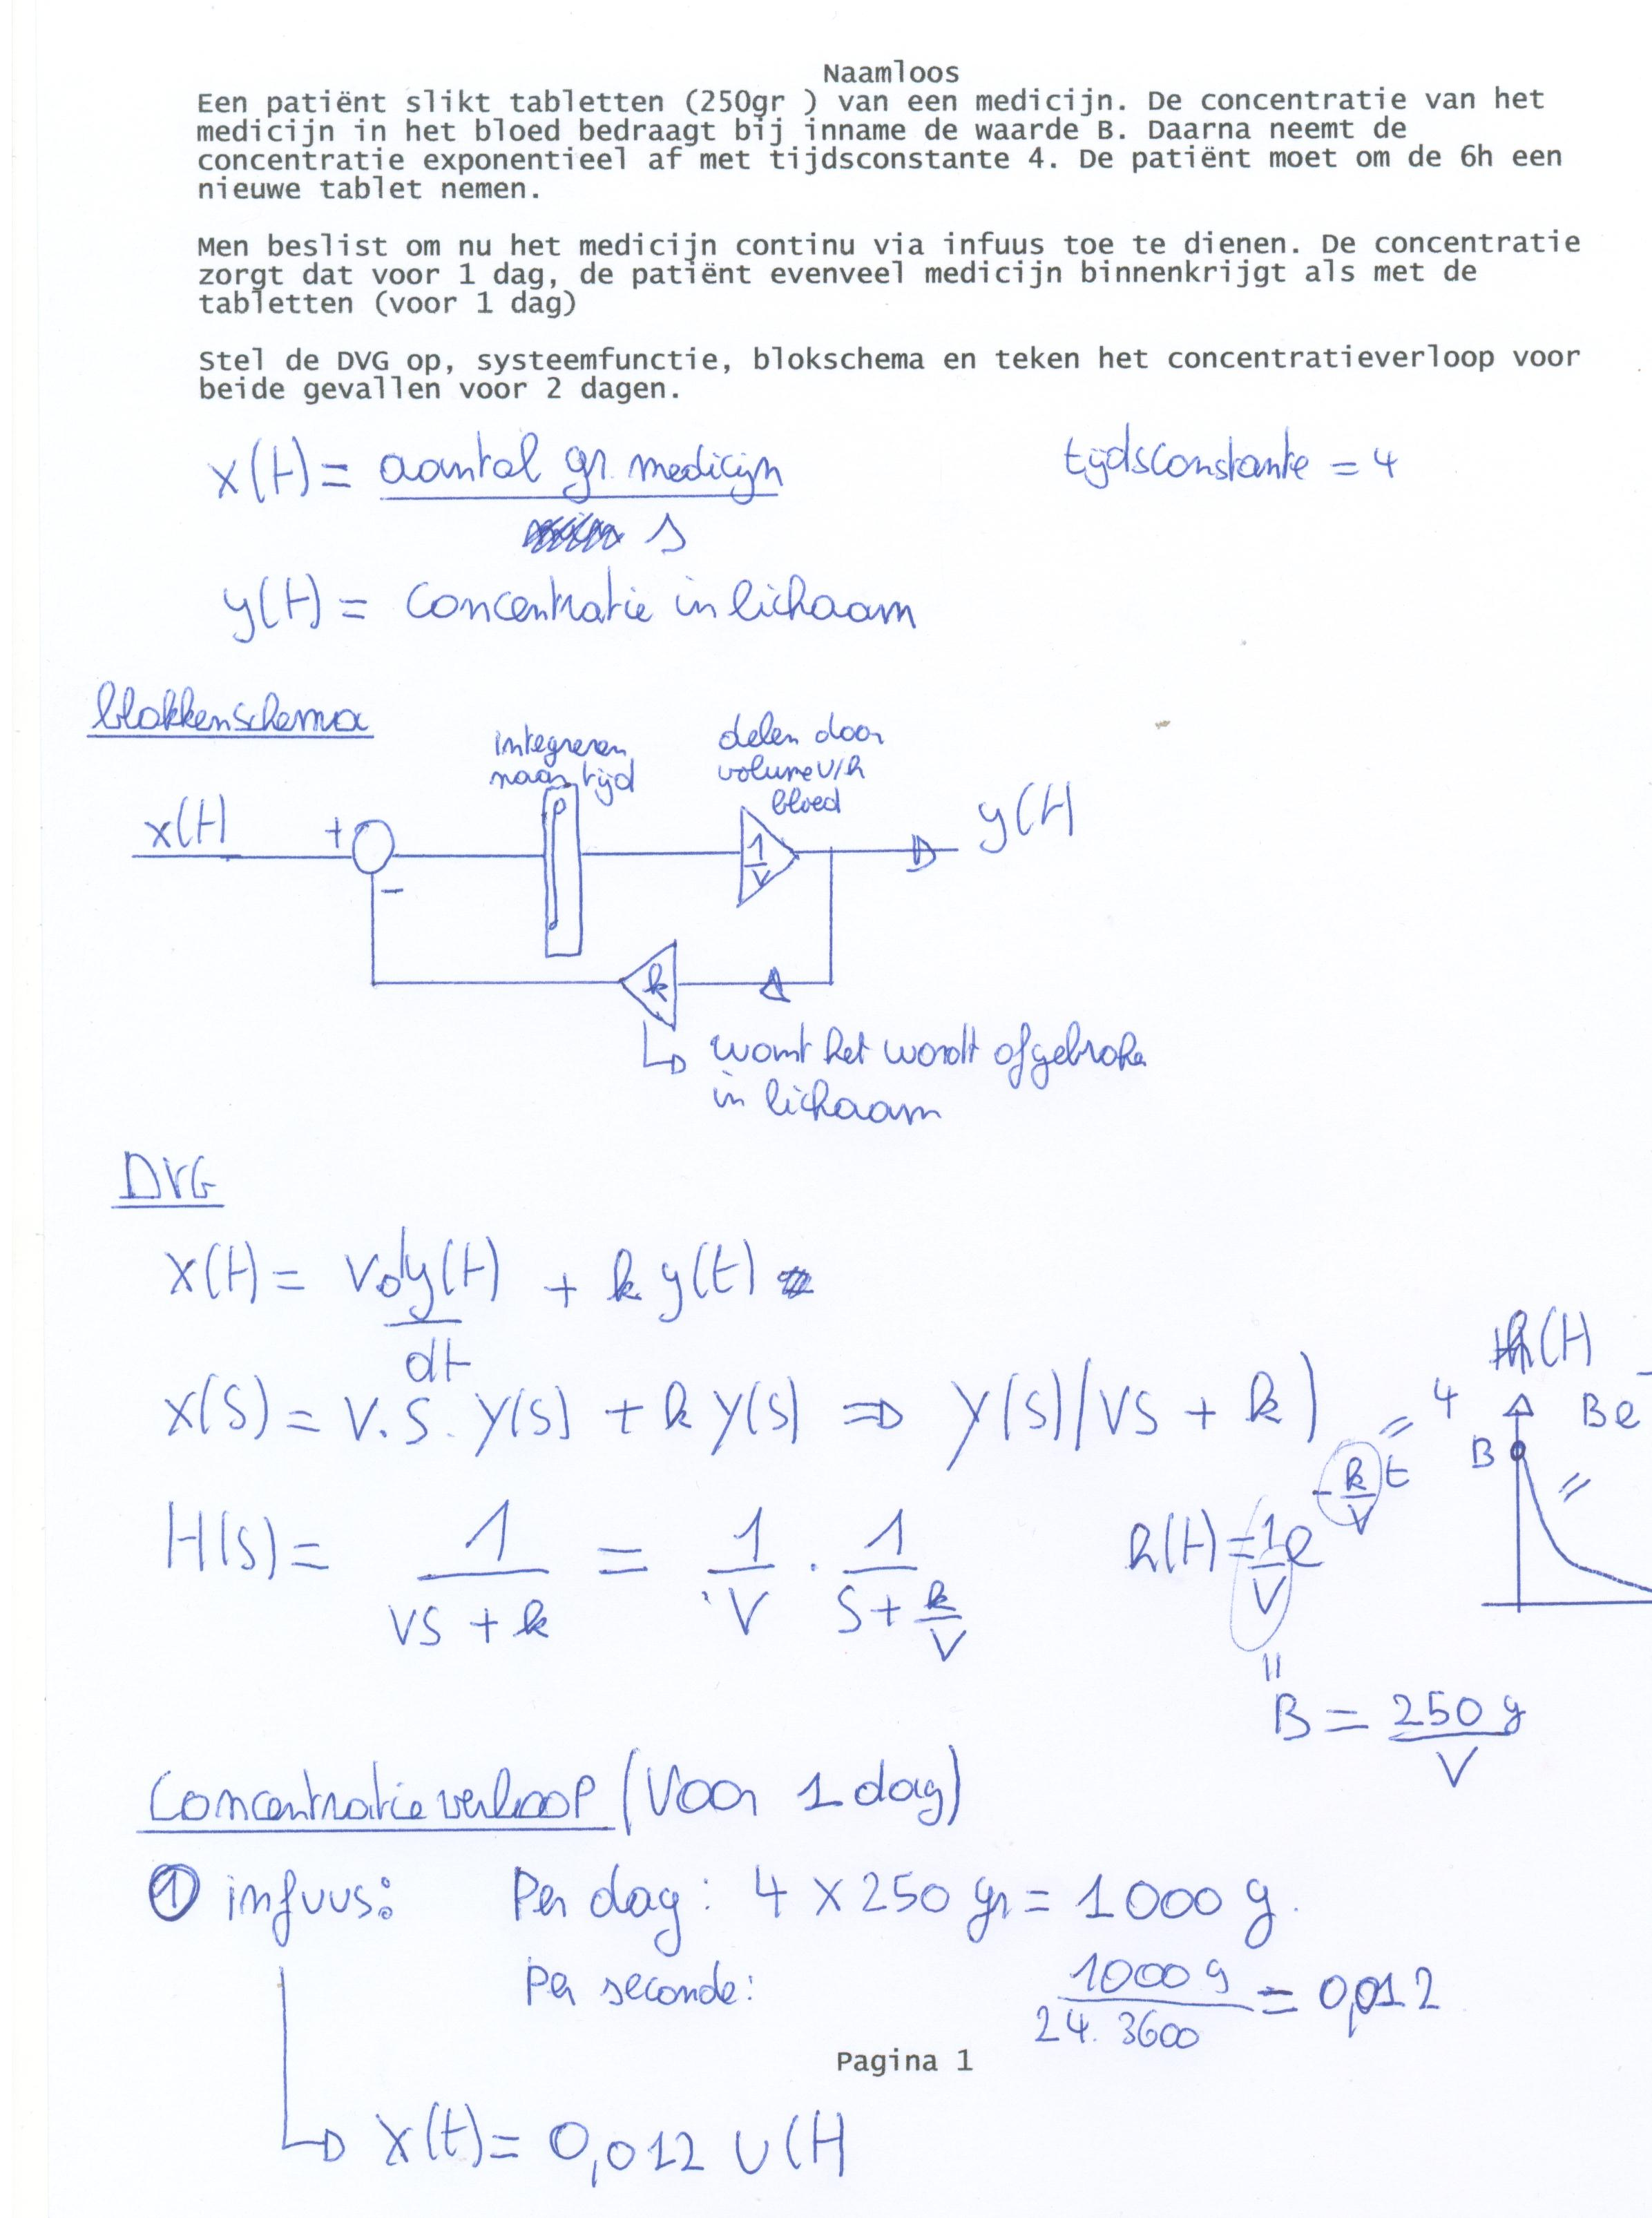 Naamloos
Een patiënt slikt tabletten (250gr ) van een medicijn. De concentratie van het
medicijn in het bloed bedraagt bij inname de waarde B. Daarna neemt de
concentratie exponentieel af met tijdsconstante 4. De patiënt moet om de 6h een
nieuwe tablet nemen.
Men beslist om nu het medicijn continu via infuus toe te dienen. De concentratie
zorgt dat voor 1 dag, de patiënt evenveel medicijn binnenkrijgt als met de
tabletten (voor 1 dag)
Stel de DVG op, systeemfunctie, blokschema en teken het concentratieverloop voor
beide gevallen voor 2 dagen.
x(t) = aantal gr. medicijn
s
tijdsconstante = 4
y(t) = concentratie in lichaam
blokkenschema
integreren
naar tijd
delen door
volume v/h
bloed
x(t)
+
-
∫
1
V
y(t)
k
want het wordt afgebroke
in lichaam
DVG
x(t) = V dy(t) + k y(t)
dt
X(S) = V.S. Y(S) + k Y(S) ⇒ Y(S)(VS + k)
H(S) = 1 = 1 . 1
VS + k V S + k
V
h(t) = 1 e - k t
V V
= 4
h(t)
B e
B
=
B = 250 g
V
Concentratieverloop (voor 1 dag)
① infuus: Per dag: 4 x 250 gr = 1000 g.
Per seconde: 1000 g = 0,012
24. 3600
Pagina 1
x(t) = 0,012 u(t)